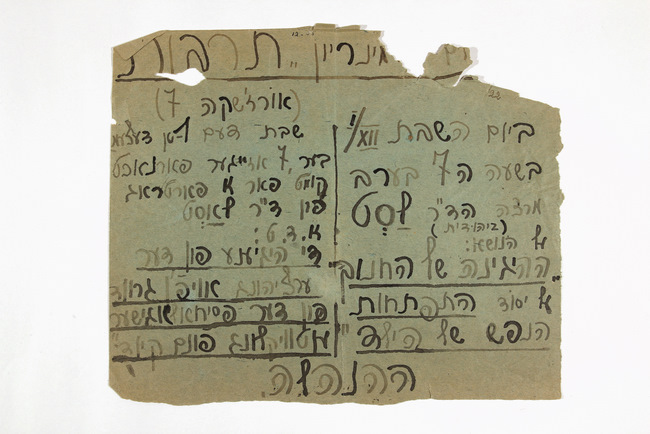 מינריון „תרבות
(אורז'שקה 7)
ביום השבת I/XII
בשעה ה 7 בערב
מרצה הד"ר לַסְט
(ביהודית)
על הנושא:
"ההגינה של החנוך
על יסוד התפתחות
הנפש של הילד"
שבת דעם 1-טן דעצעמ
בער, 7 אזייגער פארנאכט
קומט פאר א פארטראג
פון ד"ר לאַסט
א. ד. ט:
די היגיענע פון דער
ערציהונג אויפ'ן גרונד
פון דער פסיכאלאגישער
ענטוויקלונג פונם קינד"
ההנהלה.